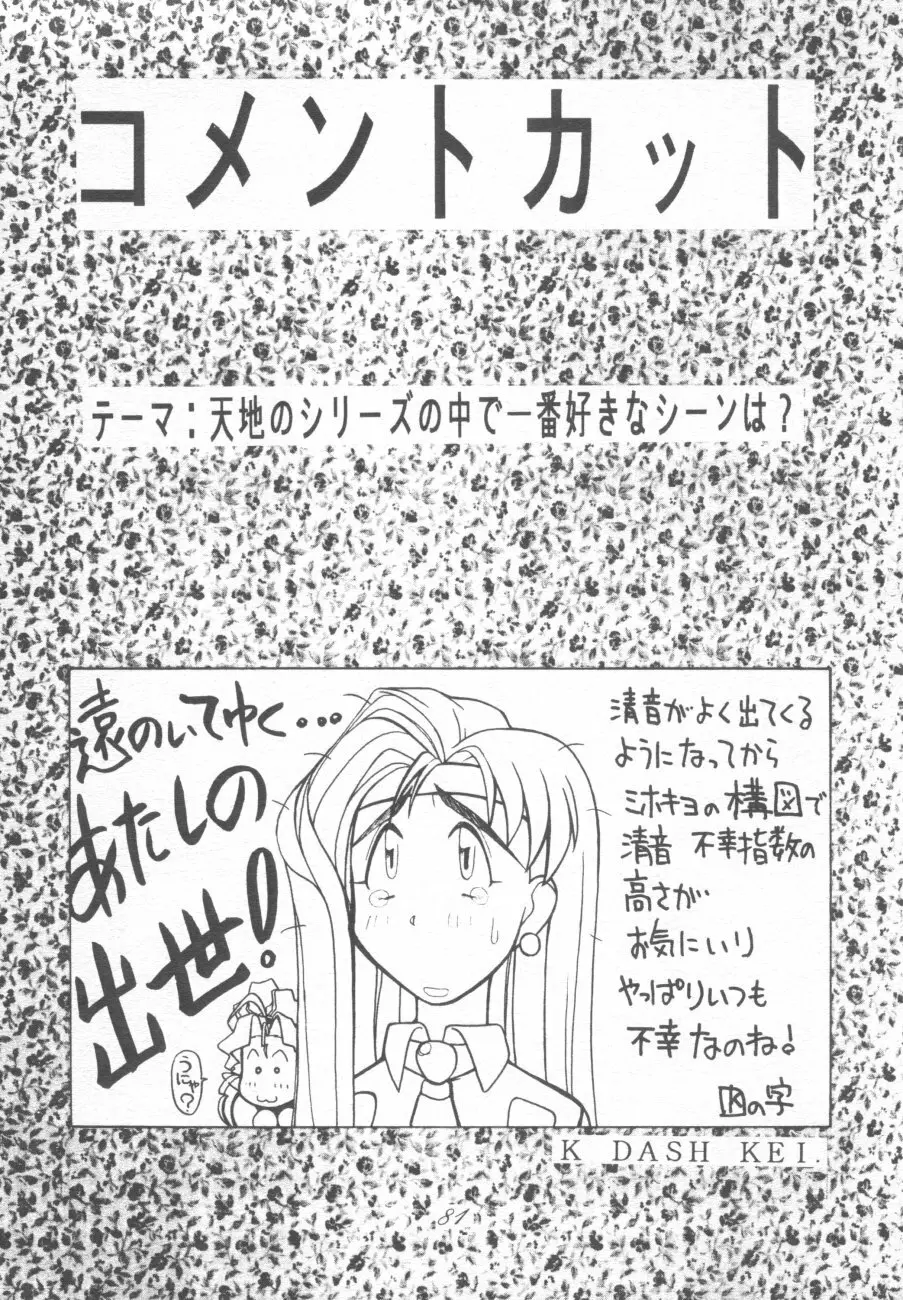 コメントカット
テーマ：天地のシリーズの中で一番好きなシーンは？
遠のいてゆく・・・
あたしの
出世！
うにゃ？
清音がよく出てくる
ようになってから
ミホキヨの構図で
清音 不幸指数の
高さが
お気にいり
やっぱりいつも
不幸なのね！
の字
K DASH KEI.
81